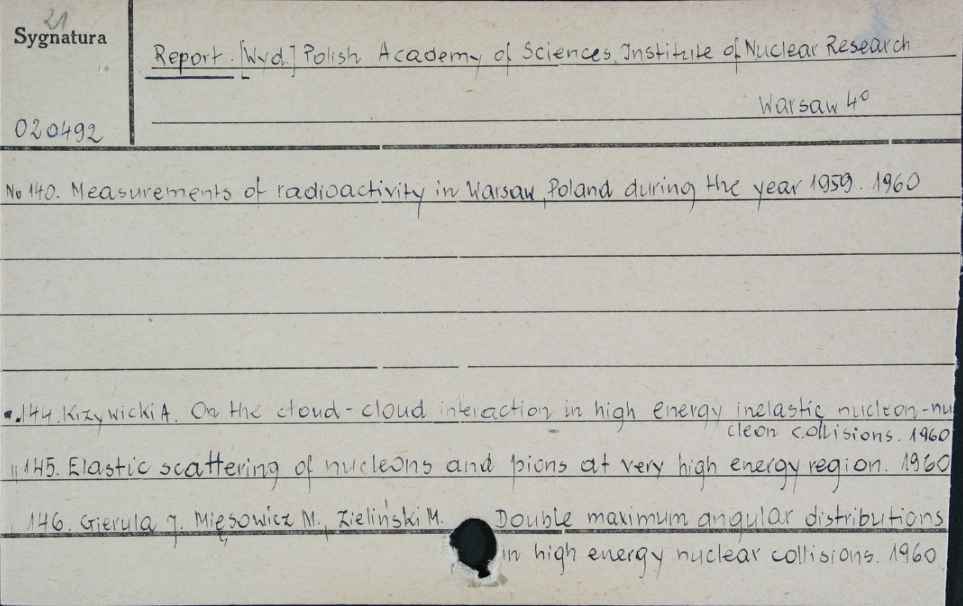 21
Sygnatura
Report. [Wyd.] Polish Academy of Sciences Institute of Nuclear Research
Warsaw 4°
020492
No 140. Measurements of radioactivity in Warsaw, Poland during the year 1959. 1960
144. Krzywicki A. On the cloud-cloud interaction in high energy inelastic nucleon-nu
cleon collisions. 1960
" 145. Elastic scattering of nucleons and pions at very high energy region. 1960
146. Gierula J. Mięsowicz M., Zieliński M. Double maximum angular distributions
in high energy nuclear collisions. 1960